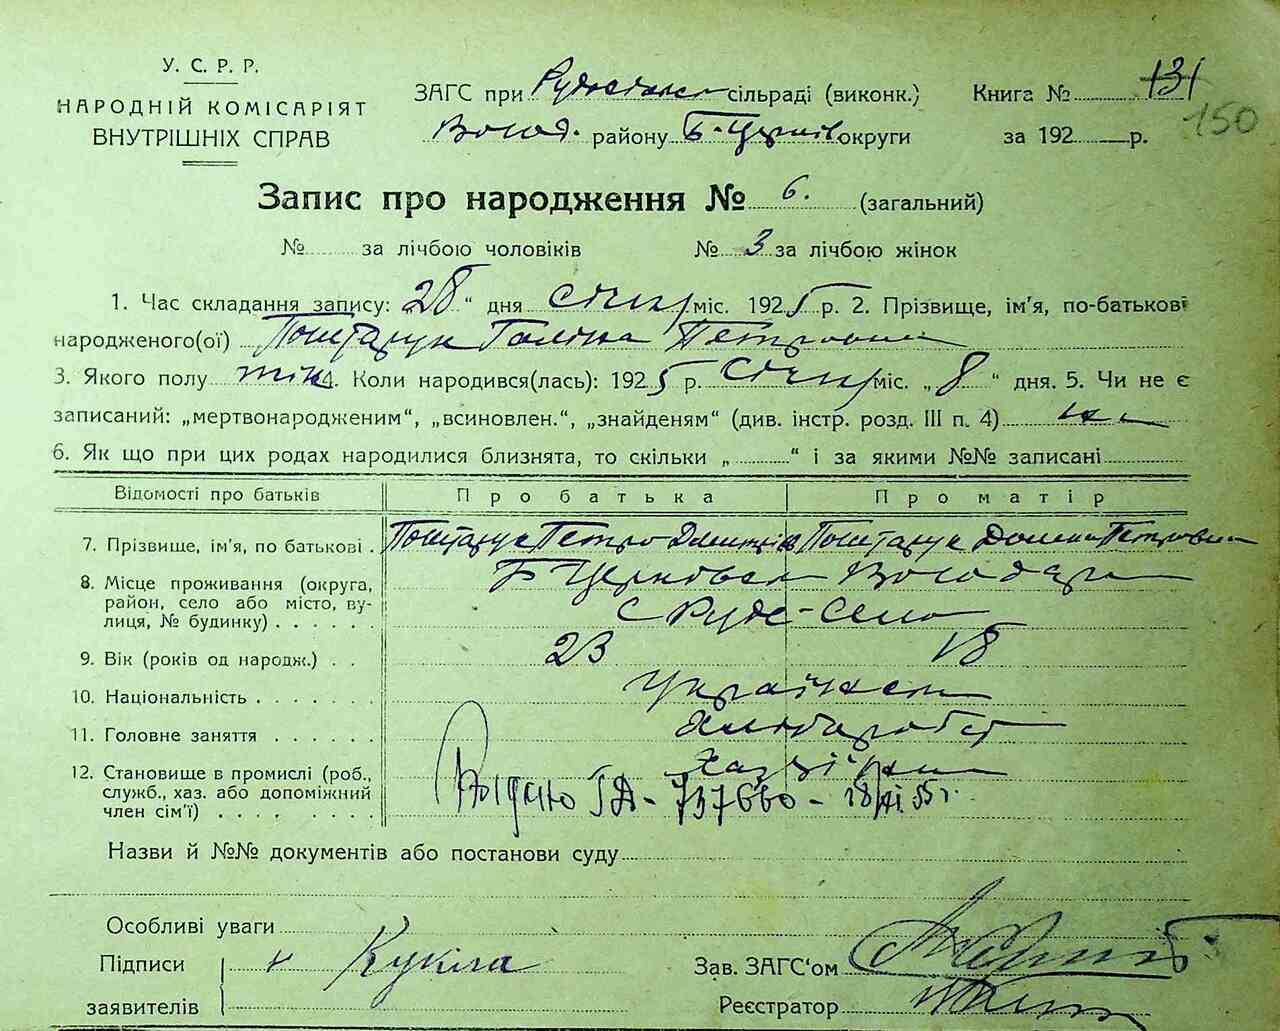 У. С. Р. Р.
НАРОДНІЙ КОМІСАРІЯТ
ВНУТРІШНІХ СПРАВ
ЗАГС при Рудосільск сільраді (виконк.) Книга №
Волод. району Б-Церків округи за 192 р.
131
150
Запис про народження № 6. (загальний)
№ за лічбою чоловіків № 3 за лічбою жінок
1. Час складання запису: „28“ дня січня міс. 1925 р. 2. Прізвище, ім'я, по-батькові
народженого(ої) Поштарук Галіна Петровна
3. Якого полу жін 4. Коли народився(лась): 1925 р. Січня міс. „8“ дня. 5. Чи не є
записаний: „мертвонародженим“, „всиновлен.“, „знайденям“ (див. інстр. розд. III п. 4) ні
6. Як що при цих родах народилися близнята, то скільки „ “ і за якими №№ записані
Відомості про батьків Про батька Про матір
7. Прізвище, ім'я, по батькові . Поштарук Петро Дмитрів Поштарук Домка Петровна
8. Місце проживання (округа, район, село або місто, вулиця, № будинку) . . . . . . Б Церковск Володарк
с Руде-Село
9. Вік (років од народж.) . . 23 18
10. Національність . . . . . . . Українск
11. Головне заняття . . . . . Хлібароб
12. Становище в промислі (роб., служб., хаз. або допоміжний член сім'ї) . . . . . . . .
Видано 737660 - 18/XI 55 г.
Назви й №№ документів або постанови суду
Особливі уваги
Підписи
заявителів
Кукла
Зав. ЗАГС'ом
Реєстратор